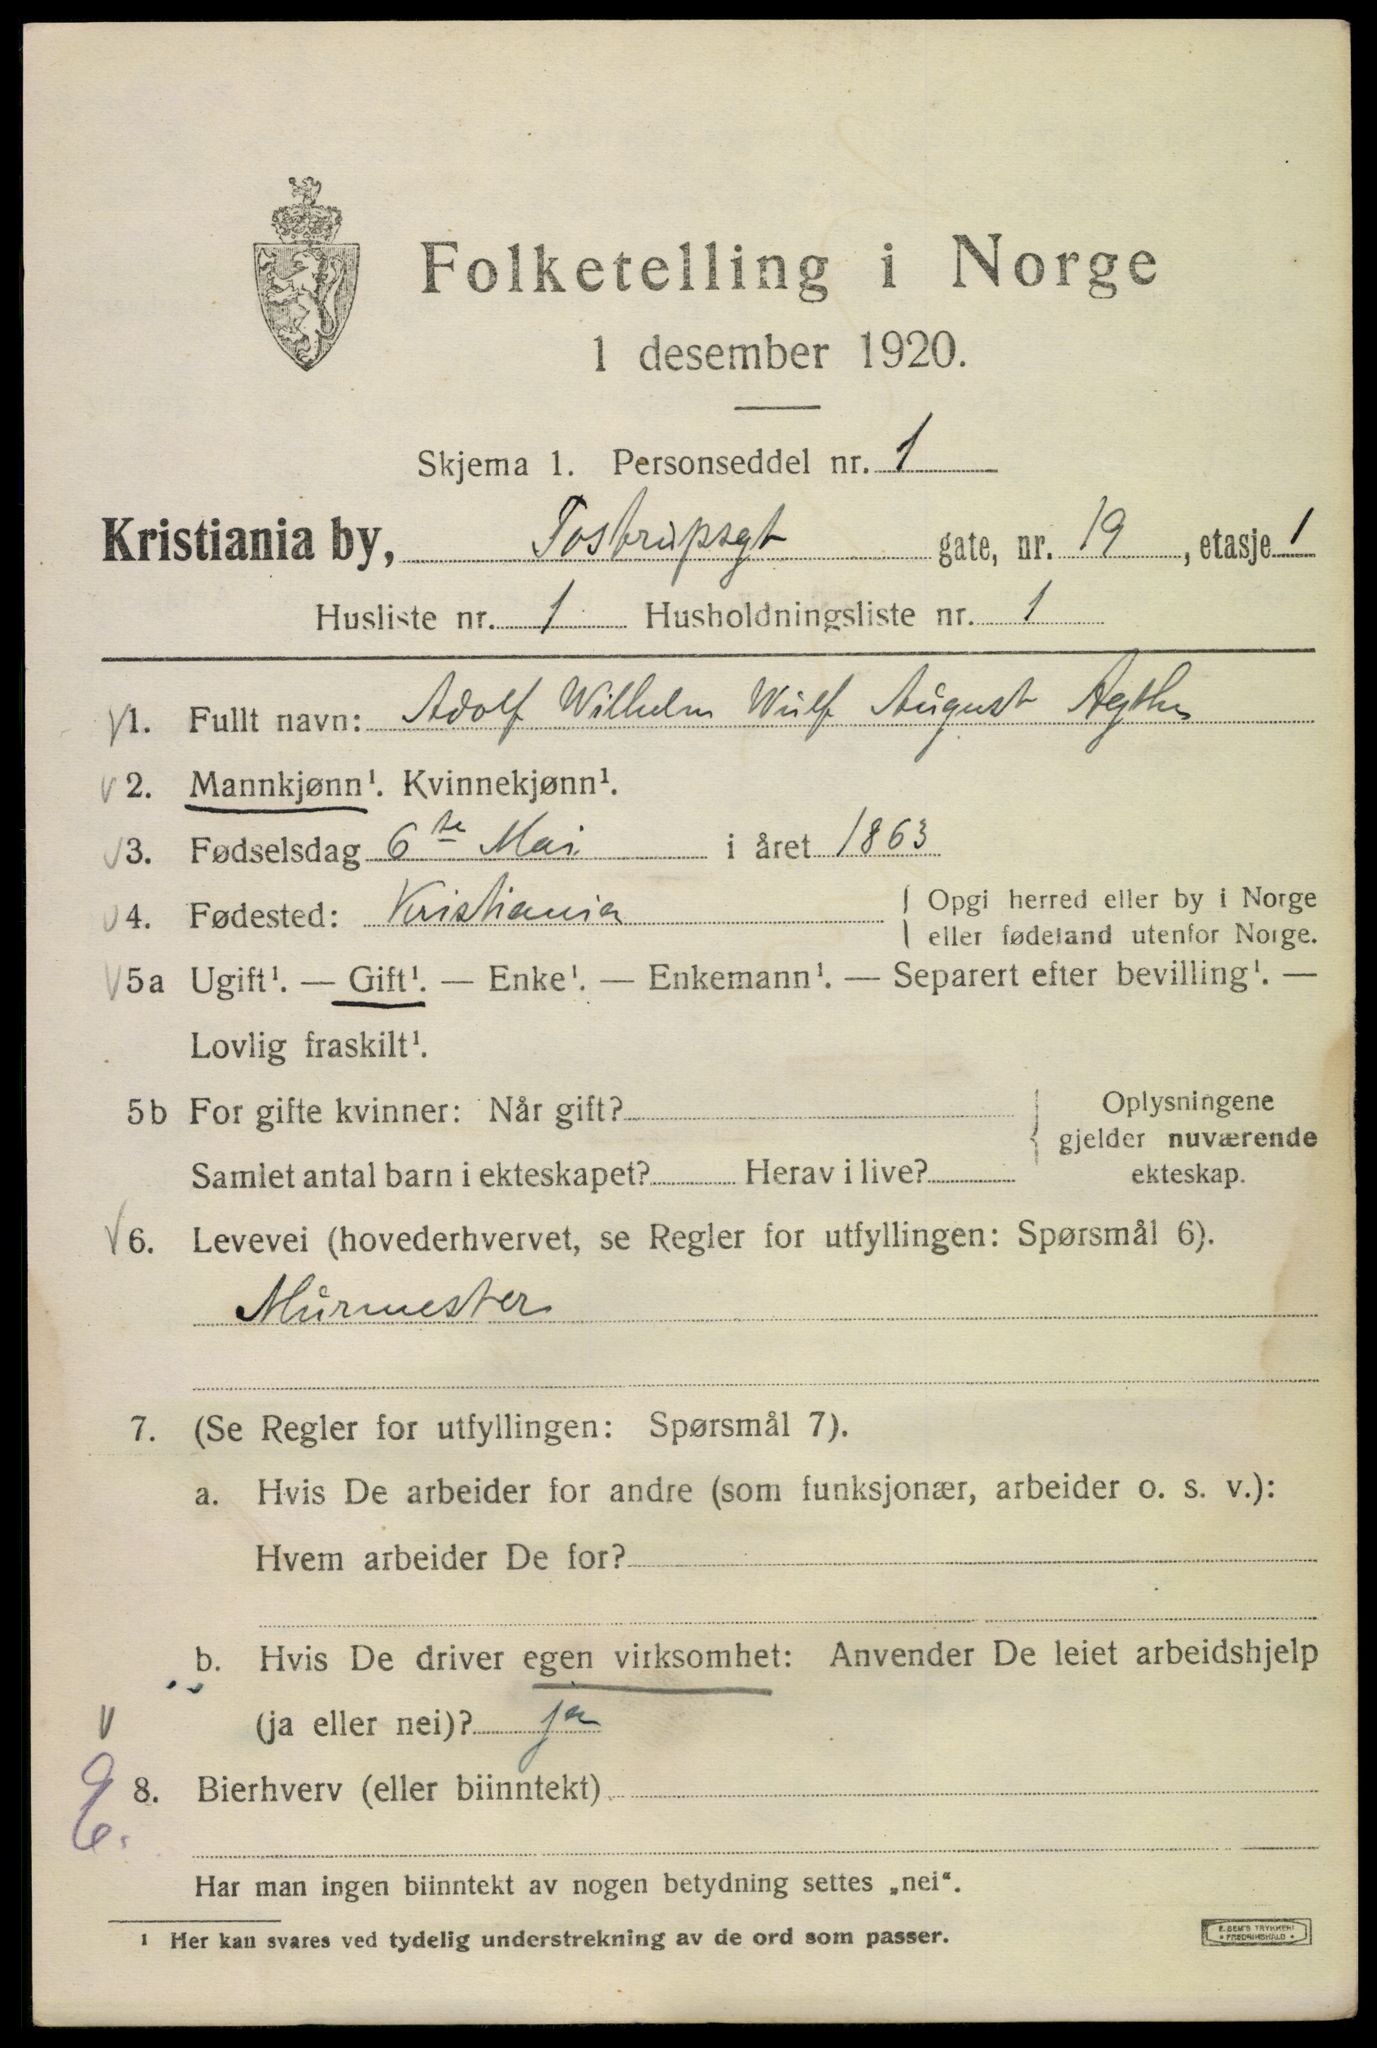 Folketelling i Norge
1 desember 1920.
Skjema 1. Personseddel nr. 1
Kristiania by, Tostrupsgt gate, nr. 19, etasje 1
Husliste nr. 1 Husholdningsliste nr. 1
1. Fullt navn: Adolf Wilhelm Wulf August Agthe
2. Mannkjønn¹. Kvinnekjønn¹.
3. Fødselsdag 6te Mai i året 1863
4. Fødested: Kristiania
Opgi herred eller by i Norge
eller fødeland utenfor Norge.
5a Ugift¹. — Gift¹. — Enke¹. — Enkemann¹. — Separert efter bevilling¹. —
Lovlig fraskilt¹.
5b For gifte kvinner: Når gift?
Samlet antal barn i ekteskapet? Herav i live?
Oplysningene
gjelder nuværende
ekteskap.
6. Levevei (hovederhvervet, se Regler for utfyllingen: Spørsmål 6).
Murmester
7. (Se Regler for utfyllingen: Spørsmål 7).
a. Hvis De arbeider for andre (som funksjonær, arbeider o. s. v.):
Hvem arbeider De for?
b. Hvis De driver egen virksomhet: Anvender De leiet arbeidshjelp
(ja eller nei)? ja
8. Bierhverv (eller biinntekt)
Har man ingen biinntekt av nogen betydning settes „nei“.
¹ Her kan svares ved tydelig understrekning av de ord som passer.
E. SEM'S TRYKKERI
FREDRIKSHALD